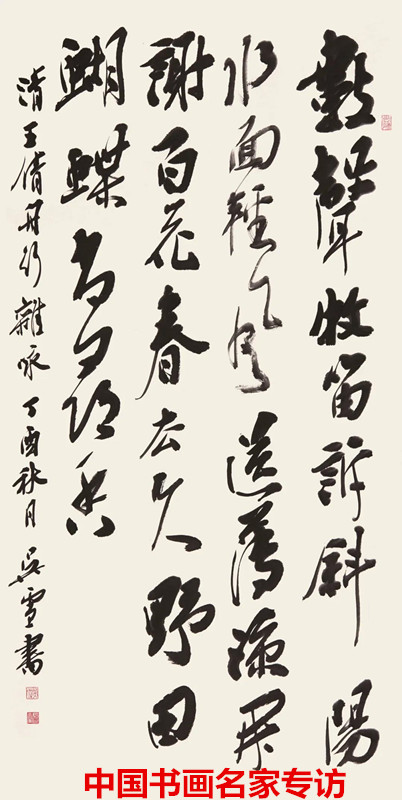 數聲牧笛訴斜陽
水面輕風送薄涼開
謝百花春去久野田
蝴蝶尚香
清王倩舟行雜咏丁酉秋月吳雪書
中国书画名家专访